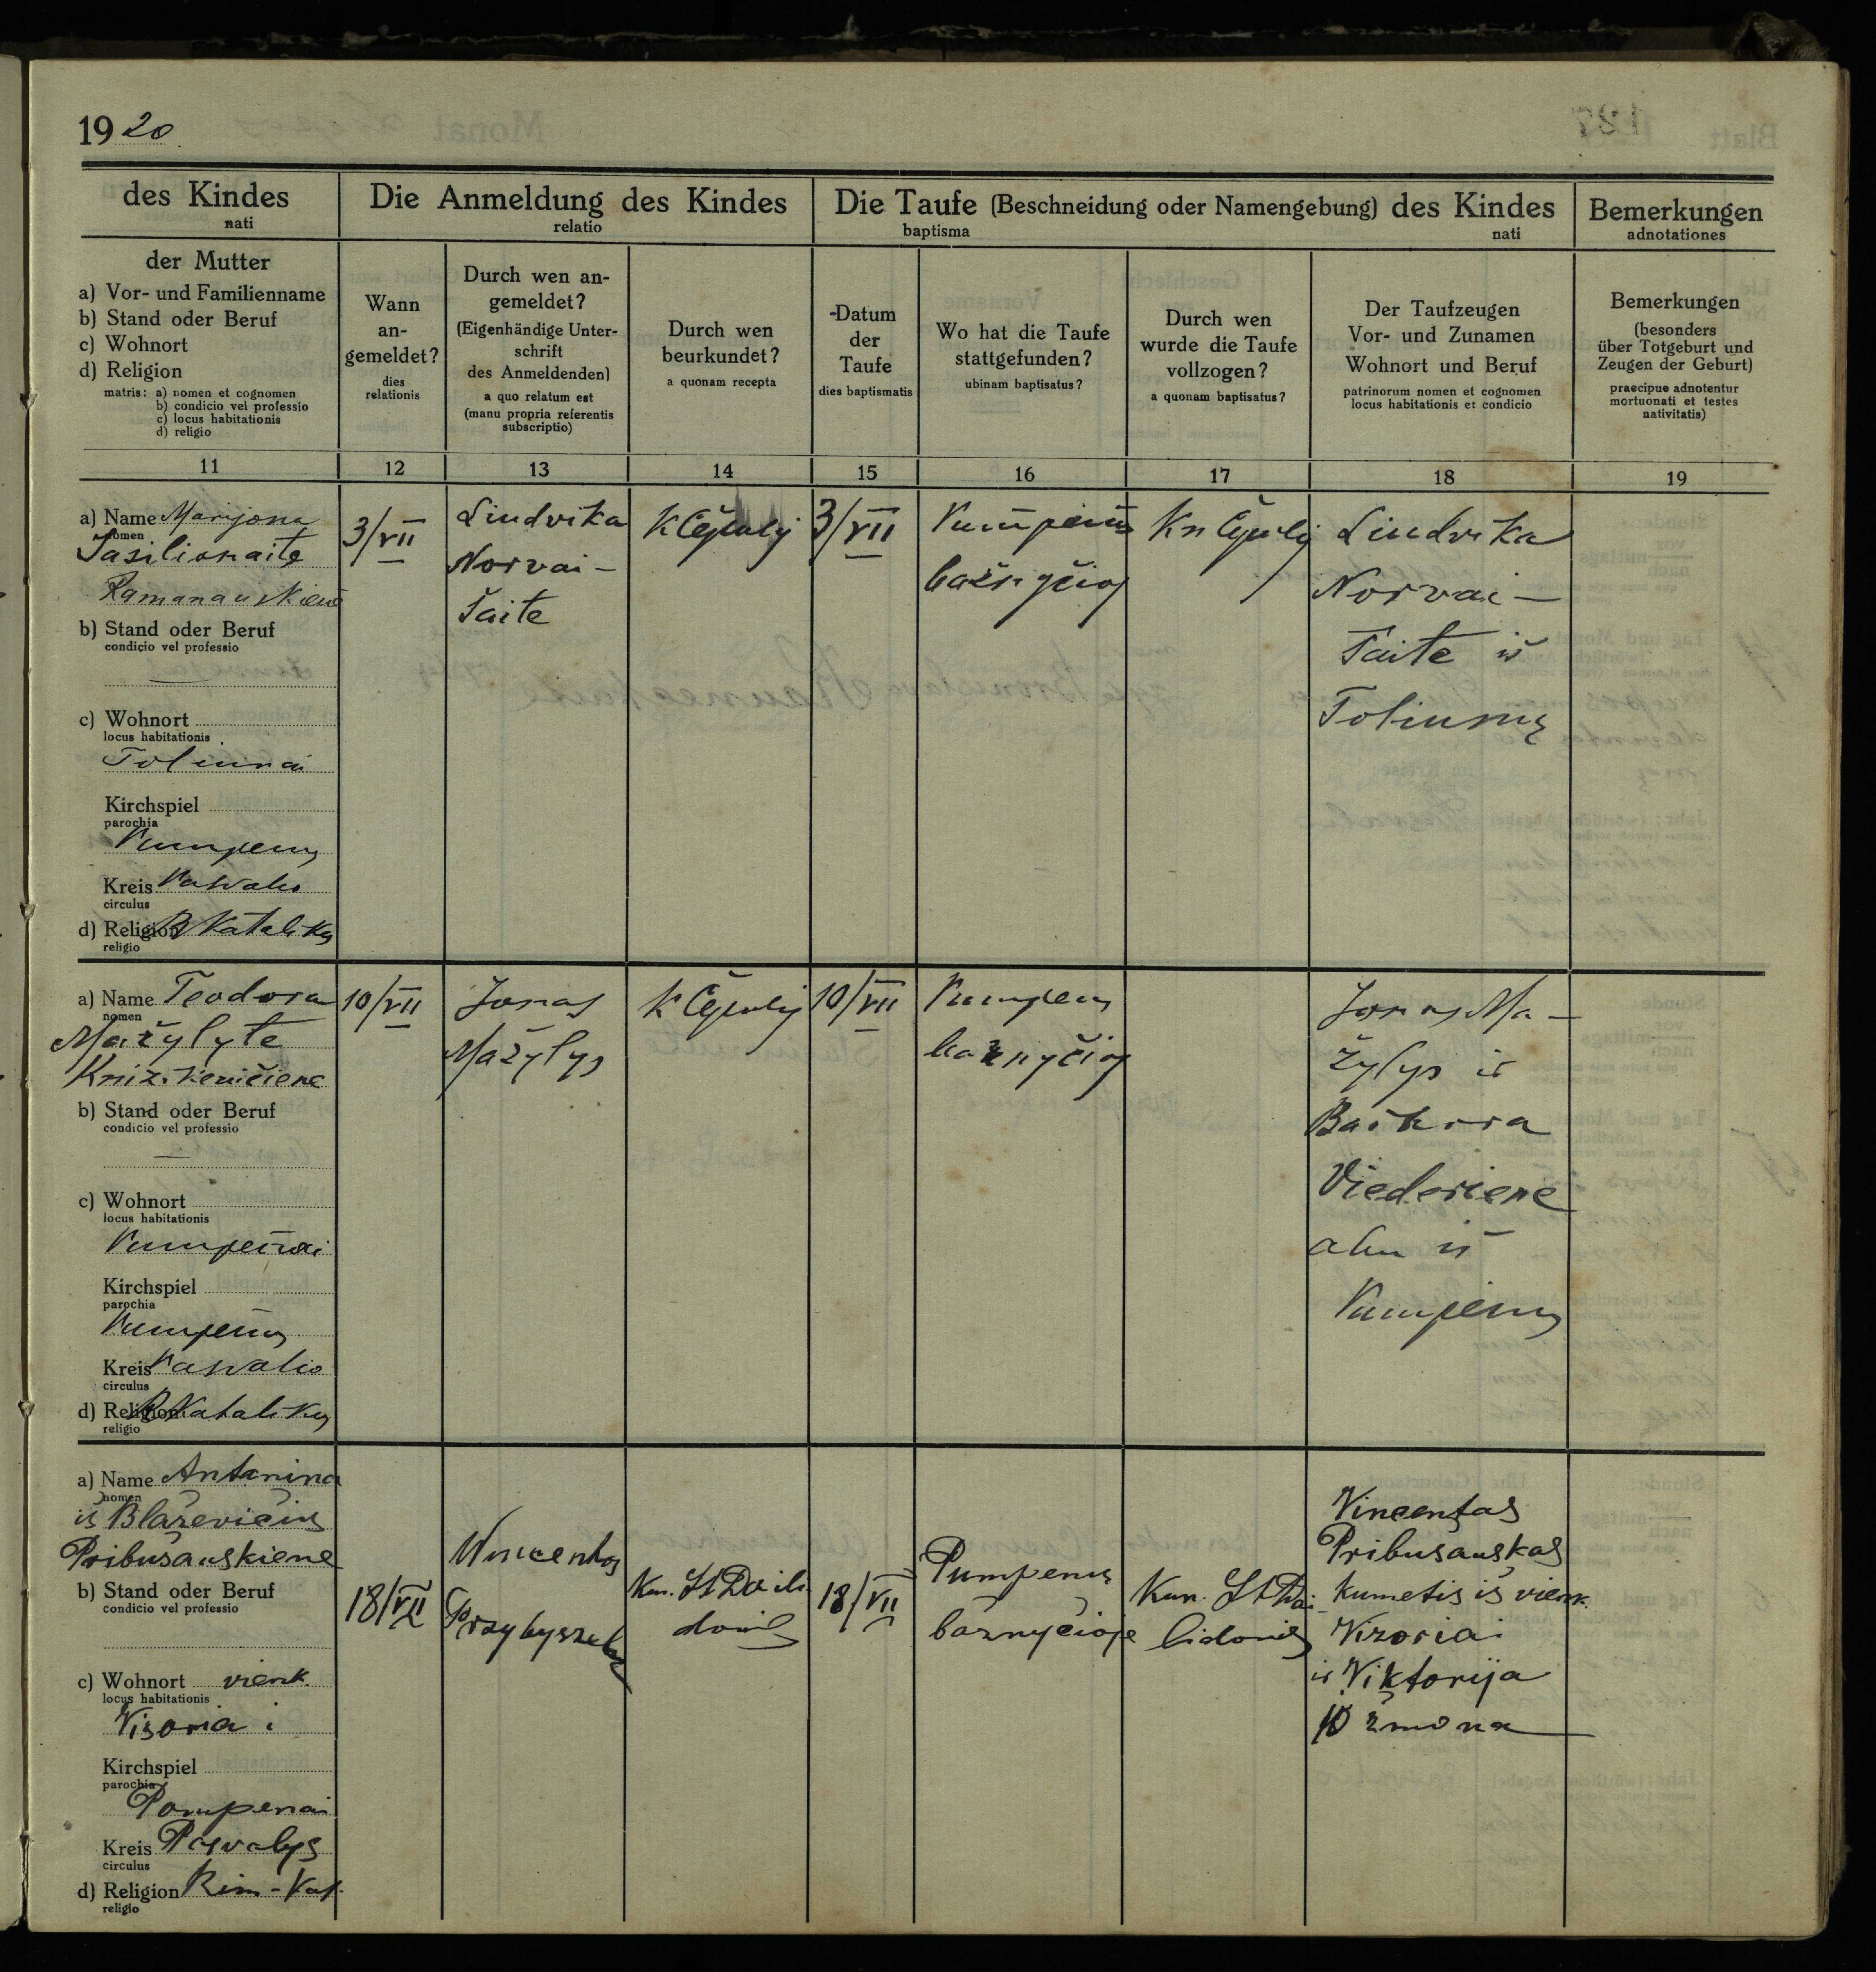 1920
des Kindes
nati
Die Anmeldung des Kindes
relatio
Die Taufe (Beschneidung oder Namengebung) des Kindes
baptisma nati
Bemerkungen
adnotationes
der Mutter
a) Vor- und Familienname
b) Stand oder Beruf
c) Wohnort
d) Religion
matris: a) nomen et cognomen
b) condicio vel professio
c) locus habitationis
d) religio
Wann
an-
gemeldet?
dies
relationis
Durch wen an-
gemeldet?
(Eigenhändige Unter-
schrift
des Anmeldenden)
a quo relatum est
(manu propria referentis
subscriptio)
Durch wen
beurkundet?
a quonam recepta
Datum
der
Taufe
dies baptismatis
Wo hat die Taufe
stattgefunden?
ubinam baptisatus?
Durch wen
wurde die Taufe
vollzogen?
a quonam baptisatus?
Der Taufzeugen
Vor- und Zunamen
Wohnort und Beruf
patrinorum nomen et cognomen
locus habitationis et condicio
Bemerkungen
(besonders
über Totgeburt und
Zeugen der Geburt)
praecipue adnotentur
mortuonati et testes
nativitatis)
11 12 13 14 15 16 17 18 19
a) Name Marijona
nomen
Ramanauskienė
b) Stand oder Beruf
condicio vel professio
c) Wohnort
locus habitationis
Toliunai
Kirchspiel
parochia
Pumpenų
Kreis Pasvalio
circulus
d) Religion R Katalikų
religio
3/VII
Liudvika
Norvai-
šaite
3/VII
Pumpenų
bažnyčioj
Liudvika
Norvai-
šaite iš
Toliunų
a) Name Teodora
nomen
Mažylyte
b) Stand oder Beruf
condicio vel professio
c) Wohnort
locus habitationis
Pumpenai
Kirchspiel
parochia
Pumpenų
Kreis Pasvalio
circulus
d) Religion R Katalikų
religio
10/VII
Jonas
Mažylys
10/VII
Pumpenų
bažnyčioj
Jonas Ma-
žylys ir
Viederiene
abu iš
Pumpenų
a) Name Antanina
nomen
iš Blaževičių
Pribušauskiene
b) Stand oder Beruf
condicio vel professio
c) Wohnort vienk.
locus habitationis
Vizoriai
Kirchspiel
parochia
Pompenai
Kreis Pasvalys
circulus
d) Religion Rim-Kat.
religio
18/VII
Wincentas
Kun. St
18/VII
Pumpenų
bažnyčioje
Kun. St
Vincentas
Pribušauskas
kumetis iš vienk.
Vizoriai
ir Viktorija
jo žmona